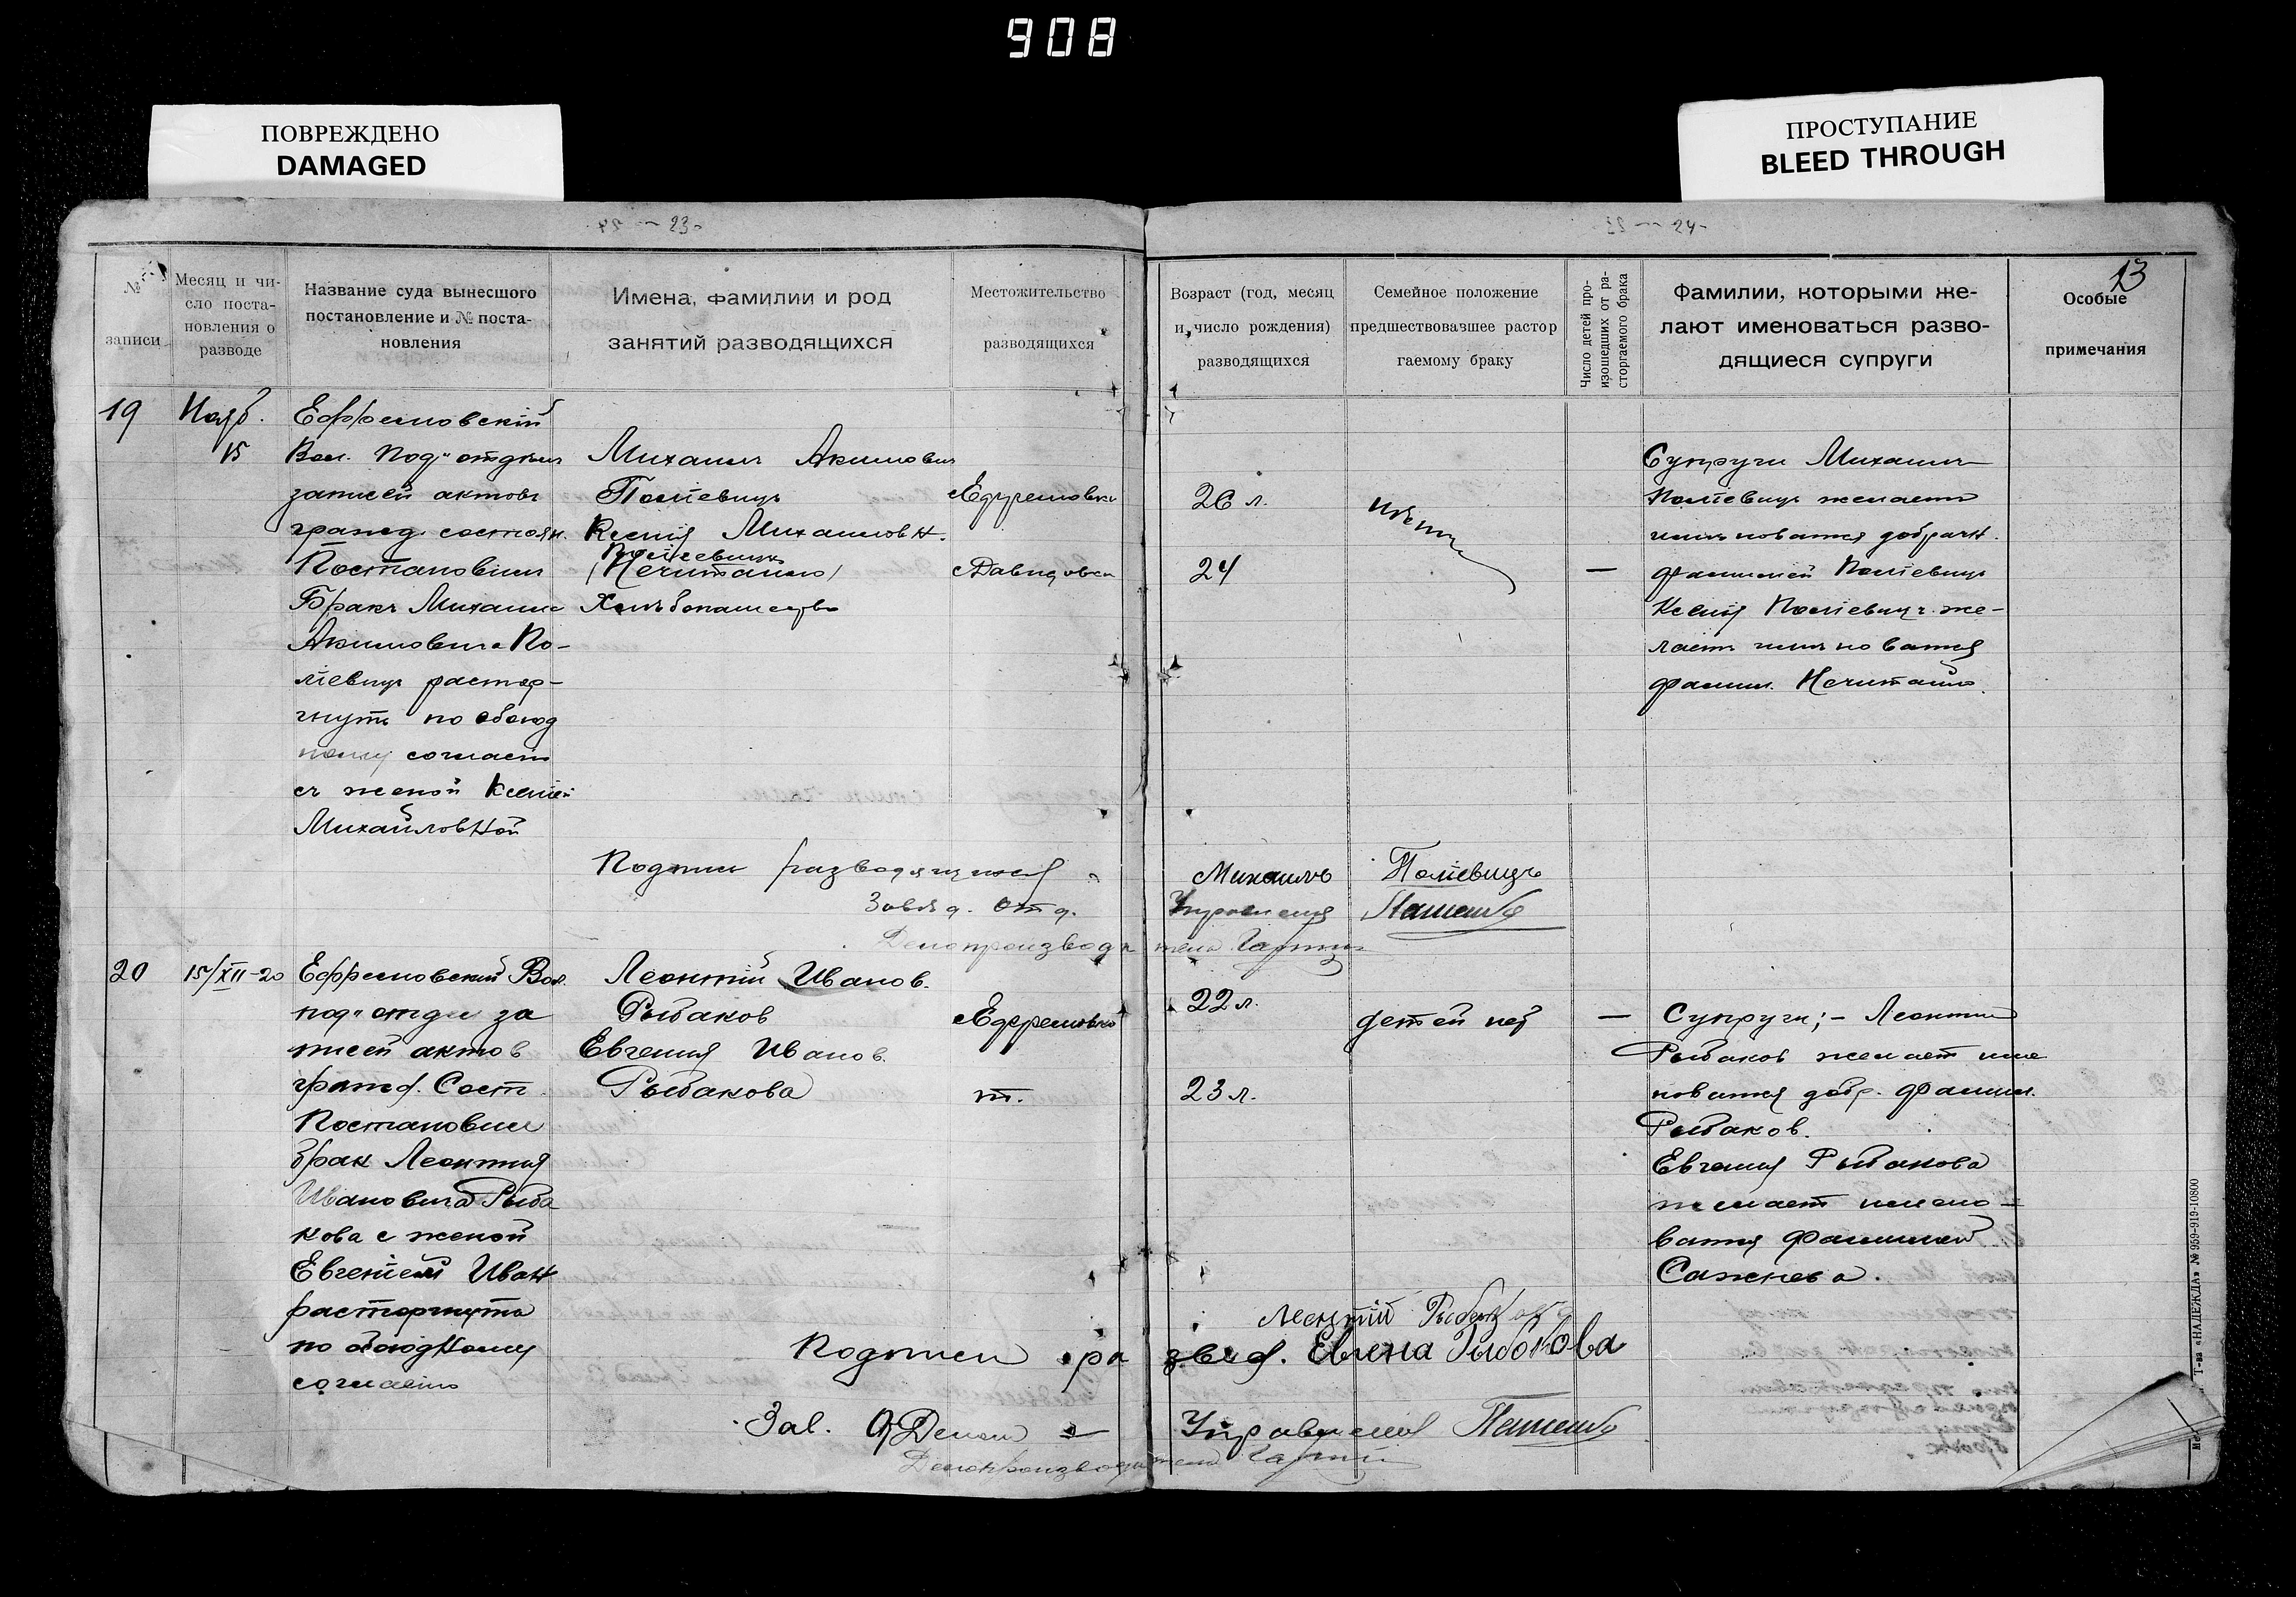 908
ПОВРЕЖДЕНО
DAMAGED
ПРОСТУПАНИЕ
BLEED THROUGH
- 23 -
- 24 -
13
№
записи
Месяц и чи-
сло поста-
новления о
разводе
Название суда вынесшого
постановление и № поста-
новления
Имена, фамилии и род
занятий разводящихся
Местожительство
разводящихся
Возраст (год, месяц
и число рождения)
разводящихся
Семейное положение
предшествовавшее растор
гаемому браку
Число детей про-
изошедших от ра-
сторгаемого брака
Фамилии, которыми же-
лают именоваться разво-
дящиеся супруги
Особые
примечания
19
Нояб.
15
Ефремовскій
Вол. под"отдѣл
записей актовъ
гражд. состоян.
Постановил
Бракъ Михаила
Акимовича По-
ліевицъ растор-
гнуть по обоюд
ному согласію
съ женой Ксеніей
Михайловной
Михаилъ Акимович
Поліевицъ
Ксенія Михаиловн.
Поліевицъ
(Нечитайло)
Хлѣбопашество
Ефремовка
Давидовка
26 л.
24
—
Супруги Михаилъ
Поліевицъ желаетъ
именоватся добрачн.
фамилией Поліевицъ
Ксенія Поліевицъ же-
лаетъ именоватся
фамил. Нечитайло.
Подписи разводящихся
Михаилъ Поліевицъ
Завѣд. Отд.
Управления
Делопроизводителя
20
15/XII-20
Ефремовский Вол.
под"отдел за
писей актов
гражд. Сост.
Постановил
брак Леонтия
Ивановича Рыба
кова с женой
Евгенией Иван
расторгнуть
по обоюдному
согласию
Леонтий Иванов.
Рыбаков
Евгения Иванов.
Рыбакова
Ефремовка
т.
22 л.
23 л.
детей нет
—
Супруги; - Леонтий
Рыбаков желает име
новатся добр. фамил.
Рыбаков.
Евгения Рыбакова
желает имено-
ватся фамилией
Сажнева.
Леонтій Рыбаков
Подписи развед. Евгена Рыбокова
Зав. Отделом Управления
Делопроизводител
Т-ва «НАДЕЖДА» № 959-919-10800